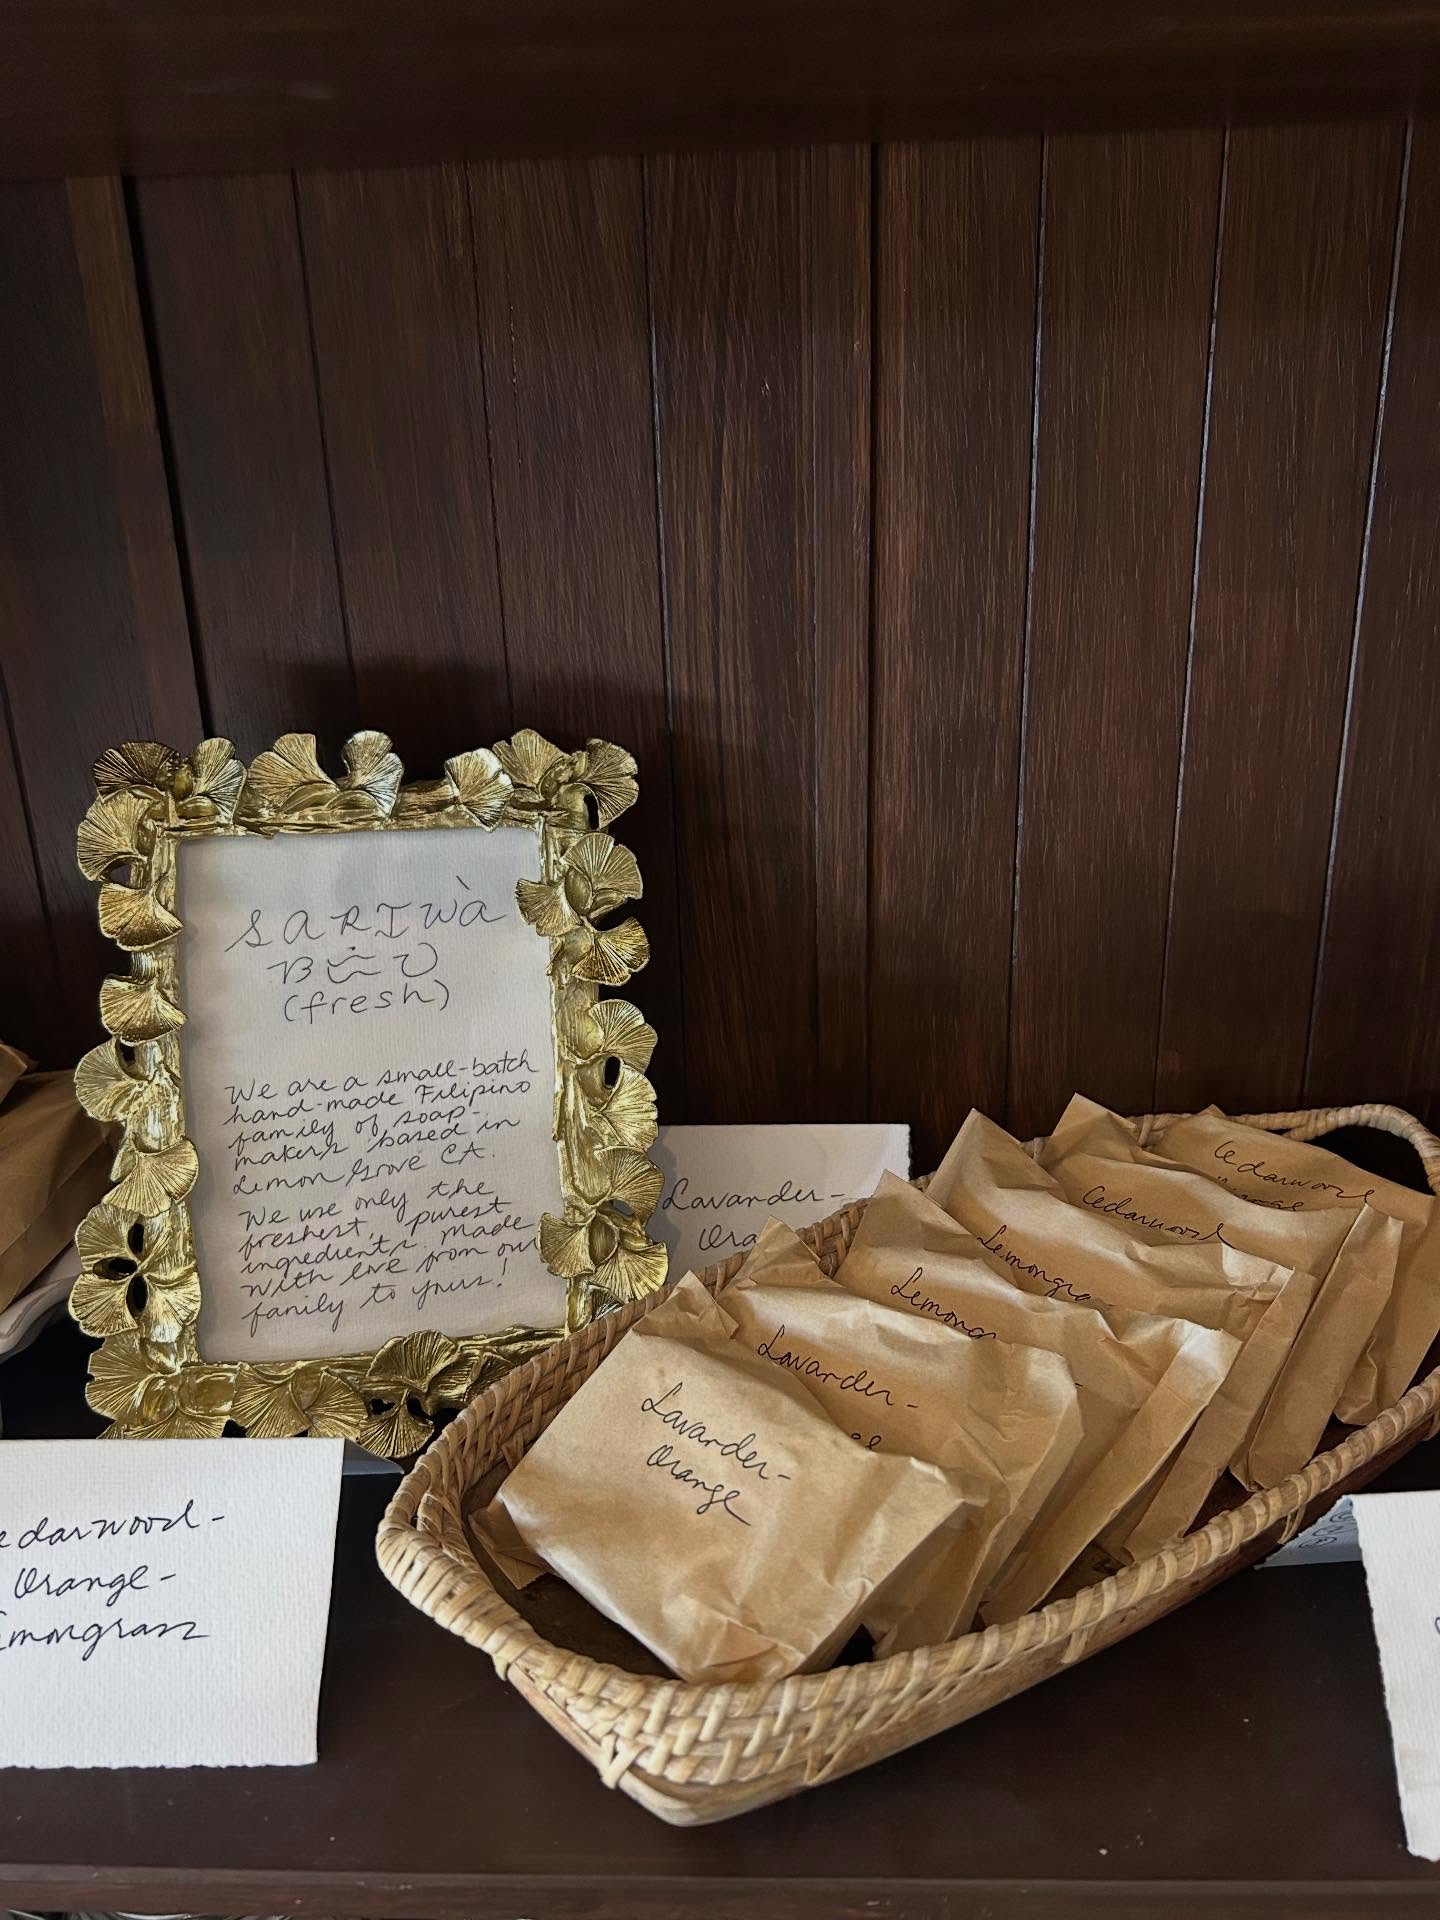 SARIWÀ
ᜐᜇᜒᜏ
(fresh)
We are a small-batch
hand-made Filipino
family of soap-
makers based in
Lemon Grove CA.
We use only the
freshest, purest
ingredients made
with love from our
family to yours!
Lavander-
Cedarwood
Cedarwood
Lavander-
Lavander-
Orange
Orange-